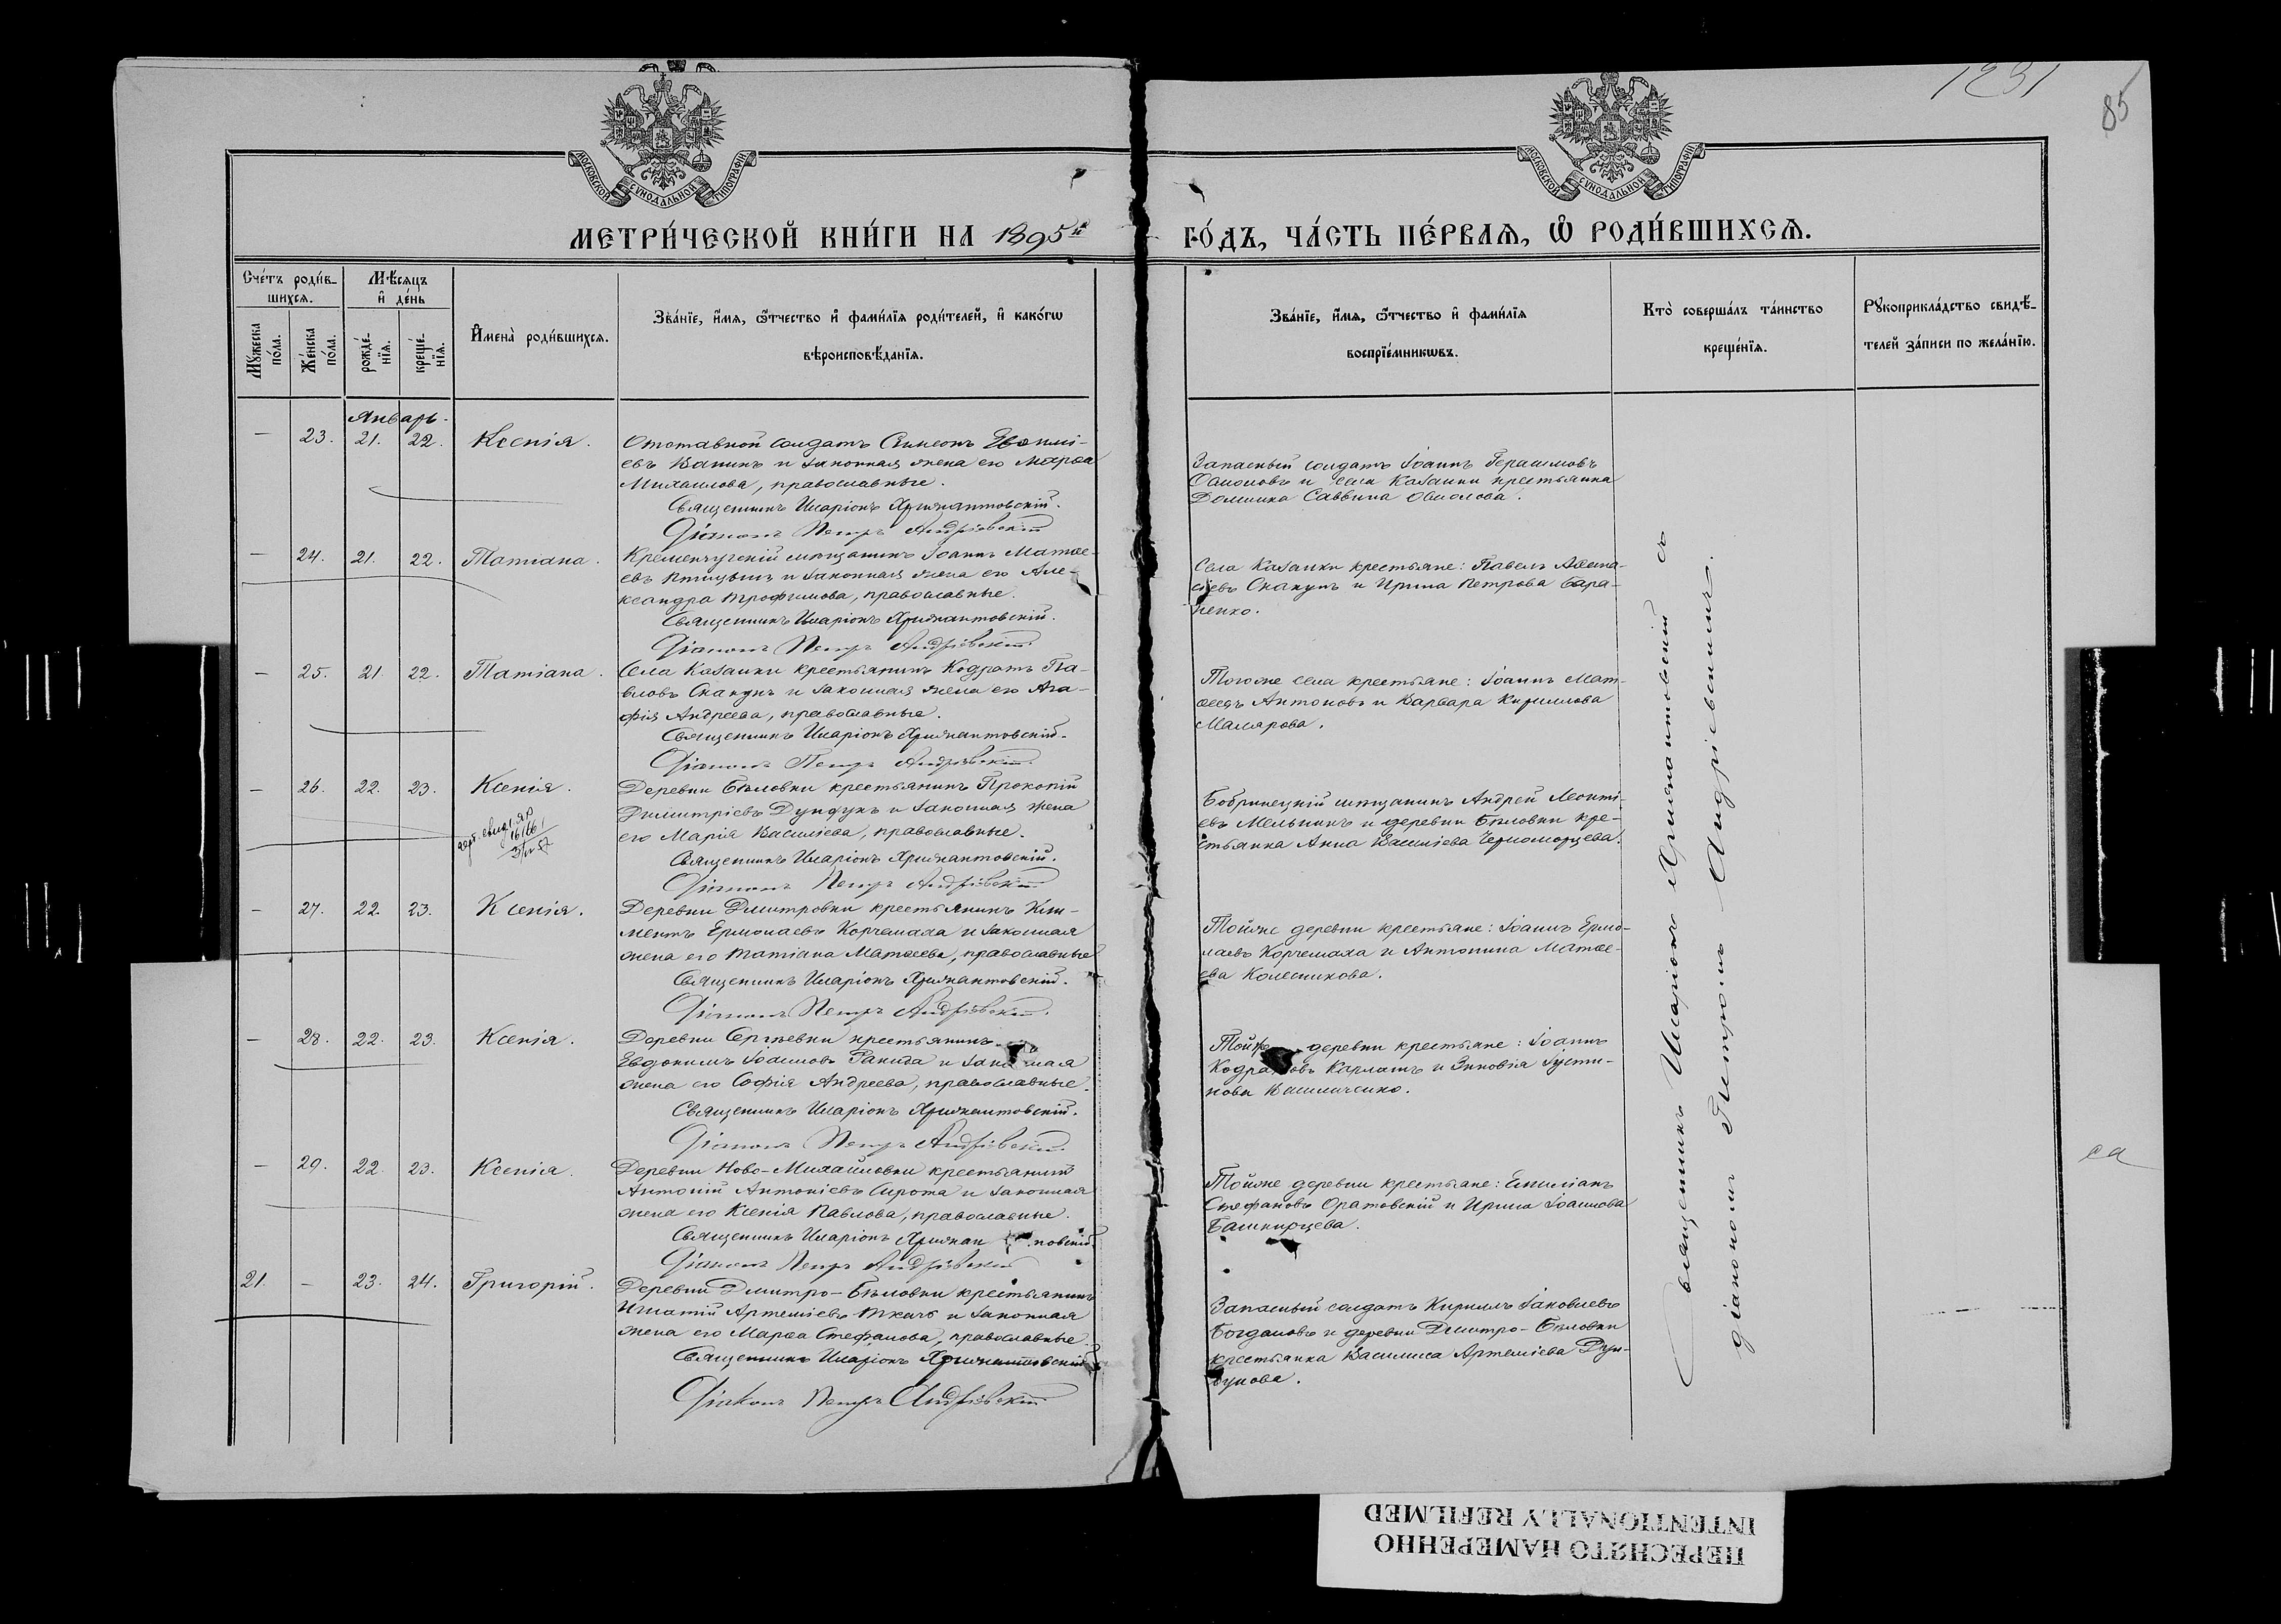 1231
85
МОСКОВСКОЙ СѴНОДАЛЬНОЙ ТИПОГРАФІИ
МОСКОВСКОЙ СѴНОДАЛЬНОЙ ТИПОГРАФІИ
МЕТРИ́ЧЕСКОЙ КНИ́ГИ НА 1895й ГО́ДЪ, ЧА́СТЬ ПЕ́РВАѦ, Ѡ РОДИ́ВШИХСѦ.
Сче́тъ роди́в-
шихсѧ.
Мѣ́сѧцъ
и҆ де́нь
Мꙋ́жеска по́ла.
Же́нска по́ла.
рожде́-
нїѧ.
креще́-
нїѧ.
И҆мена̀ роди́вшихсѧ.
Зва́нїе, и҆́мѧ, ѻ҆́тчество и҆ фами́лїѧ роди́телей, и҆ како́гѡ
вѣроисповѣ́данїѧ.
Зва́нїе, и҆́мѧ, ѻ҆́тчество и҆ фами́лїѧ
воспрїе́мникѡвъ.
Кто̀ соверша́лъ та́инство
креще́нїѧ.
Рꙋкоприкла́дство свидѣ́-
телей за́писи по жела́нїю.
Январь.
— 23. 21. 22. Ксенія.
Отставной солдатъ Симеонъ Евфимі-
евъ Ванинъ и законная жена его Марѳа
Михаилова, православные.
Священникъ Иларіонъ Хрисантовскій.
Діаконъ Петръ Андріевскій
Запасный солдатъ Іоаннъ Герасимовъ
и села Казанки крестьянка
Домника Саввина
— 24. 21. 22. Татіана.
Кременчугскій мѣщанинъ Іоаннъ Матѳе-
евъ Птицынъ и законная жена его Але-
ксандра Трофимова, православные.
Священникъ Иларіонъ Хрисантовскій.
Діаконъ Петръ Андріевскій
Села Казанки крестьяне: Павелъ Аѳана-
сіевъ Скакунъ и Ирина Петрова Бара-
ненко.
— 25. 21. 22. Татіана.
Села Казанки крестьянинъ Кодратъ Па-
вловъ Скакунъ и законная жена его Ага-
фія Андреева, православные.
Священникъ Иларіонъ Хрисантовскій.
Діаконъ Петръ Андріевскій.
Тогоже села крестьяне: Іоаннъ Мат-
ѳеевъ Антоновъ и Варвара Кириллова
Малярова.
— 26. 22. 23. Ксенія.
Деревни Бѣловки крестьянинъ Прокопій
Димитріевъ Дундукъ и законная жена
его Марія Василіева, православные.
Священникъ Иларіонъ Хрисантовскій.
Діаконъ Петръ Андріевскій
Бобринецкій мѣщанинъ Андрей Леонті-
евъ Мельникъ и деревни Бѣловки кре-
стьянка Анна Василіева Черноморцева.
— 27. 22. 23. Ксенія.
Деревни Дмитровки крестьянинъ Кли-
ментъ Ермолаевъ Корчемаха и законная
жена его Татіана Матѳеева, православные
Священникъ Иларіонъ Хрисантовскій.
Діаконъ Петръ Андріевскій.
Тойже деревни крестьяне: Іоаннъ Ермо-
лаевъ Корчемаха и Антонина Матѳе-
ева Колесникова.
— 28. 22. 23. Ксенія.
Деревни Сергѣевки крестьянинъ
Евдокимъ Іоанновъ и законная
жена его Софія Андреева, православные.
Священникъ Иларіонъ Хрисантовскій.
Діаконъ Петръ Андріевскій.
Тойже деревни крестьяне: Іоаннъ
Кодратовъ Карлашъ и Зиновія Іусти-
нова
— 29. 22. 23. Ксенія.
Деревни Ново-Михайловки крестьянинъ
Антоній Антоніевъ Сирота и законная
жена его Ксенія Павлова, православные.
Священникъ Иларіонъ Хрисантовскій.
Діаконъ Петръ Андріевскій
Тойже деревни крестьяне: Емиліанъ
Стефановъ Оратовскій и Ирина Іоаннова
Башкирцева.
21. — 23. 24. Григорій.
Деревни Дмитро-Бѣловки крестьянинъ
Игнатій Артеміевъ Ткачъ и законная
жена его Марѳа Стефанова, православные.
Священникъ Иларіонъ Хрисантовскій
Діаконъ Петръ Андріевскій
Запасный солдатъ Кириллъ Іаковлевъ
Богдановъ и деревни Дмитро-Бѣловки
крестьянка Василиса Артеміева Дун-
дукова.
Священникъ Иларіонъ Хрисантовскій съ
діакономъ Петромъ Андріевскимъ.
ПЕРЕСНЯТО НАМЕРЕННО
INTENTIONALLY REFILMED